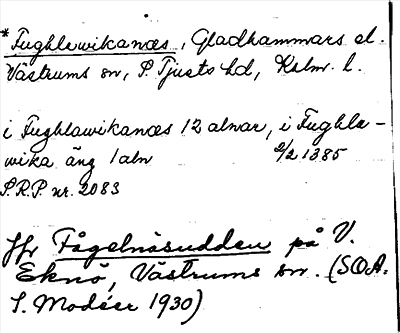 *Fughlawikanæs, Gladhammars el.
Västrums sn, S. Tjusts hd, Kalm. l.
i Fughlawikanæs 12 alnar, i Fughla-
wika äng 1 aln 2/2 1385
S.R.P. nr. 2083
Jfr Fågelnäsudden på V.
Eknö, Västrums sn. (SOA.
I. Modéer 1930)